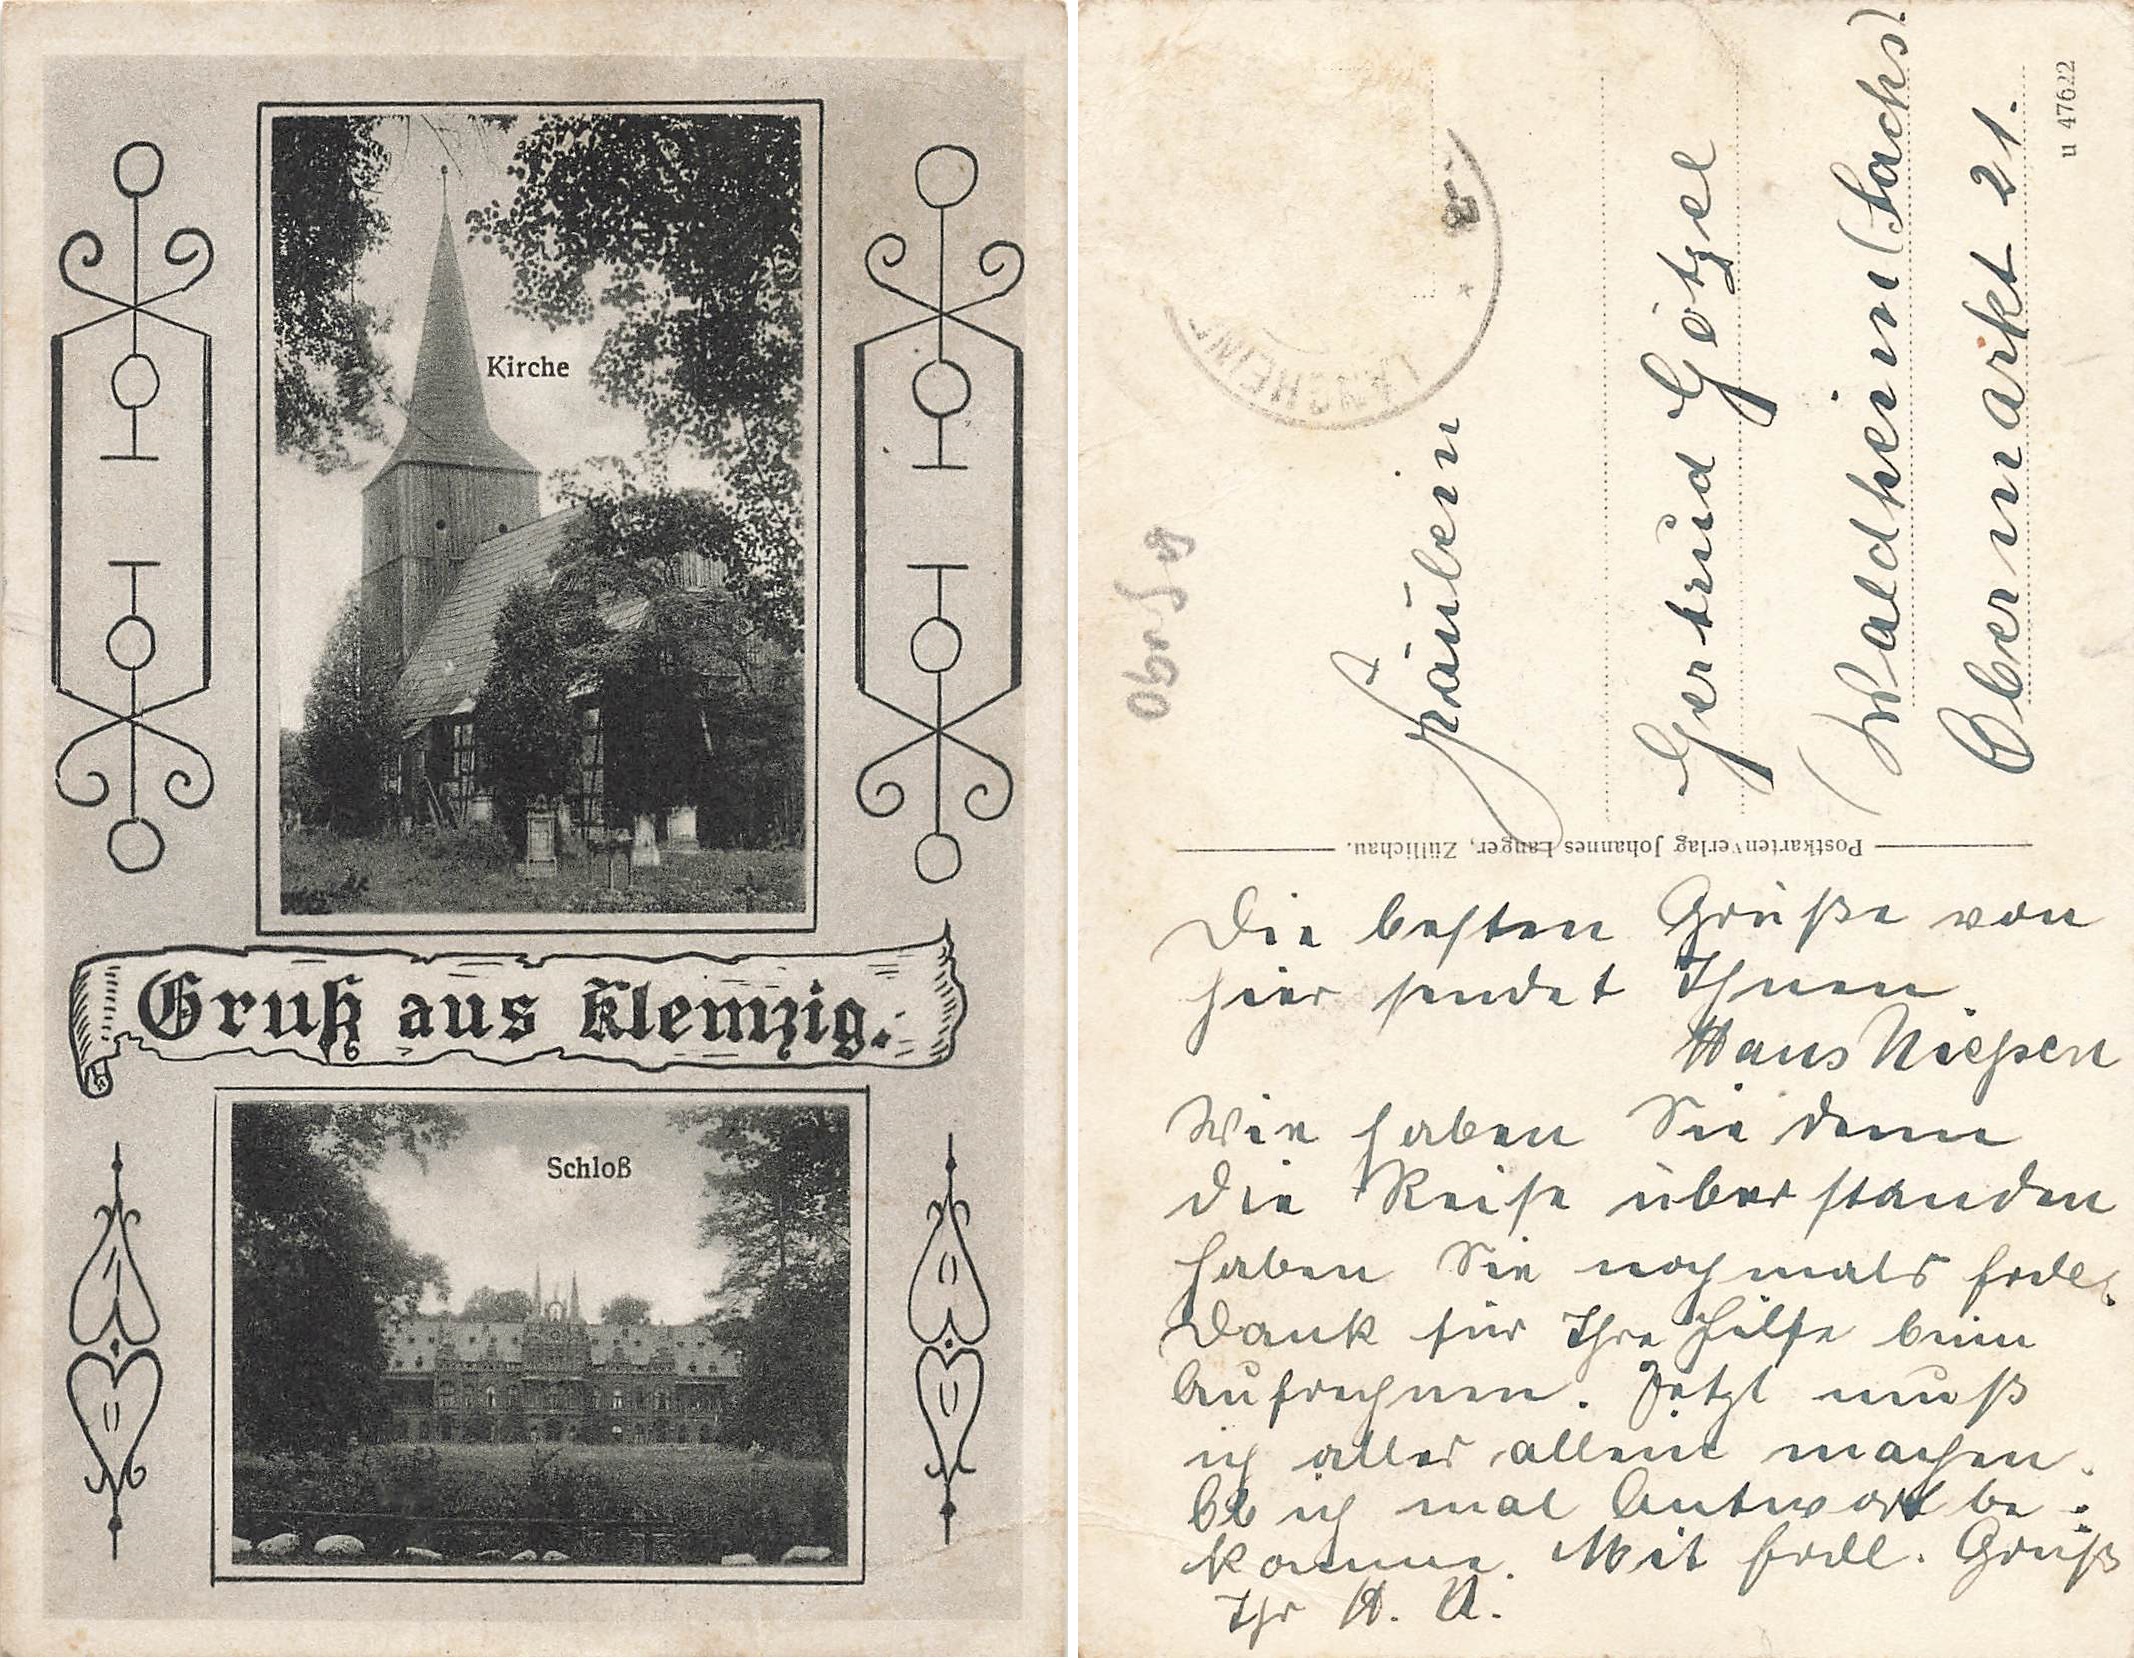 Kirche
Gruß aus Klemzig.
Schloß
LANGHEIN
Fräulein
Gertrud Götzel
(Waldheim (Sachs).
Obermarkt 21.
u 47622
Postkartenverlag Johannes Langer, Züllichau.
Die besten Grüße von
hier sendet Ihnen
Hans
Wie haben Sie denn
die Reise überstanden
haben Sie nochmals frdl.
Dank für Ihre Hilfe beim
Aufrechnen. Jetzt muß
ich alles allein machen.
Ob ich mal Antwort be-
komme. Mit frdll. Gruß
Ihr H. N.